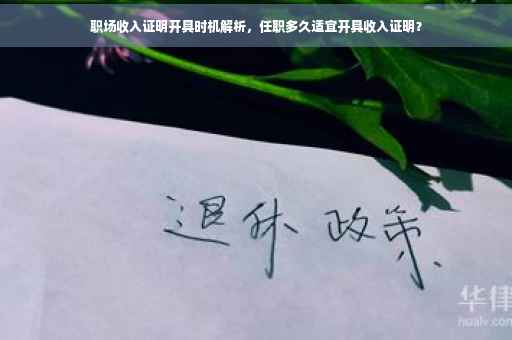 职场收入证明开具时机解析，任职多久适宜开具收入证明？
退休 政策
华律
hualv.com